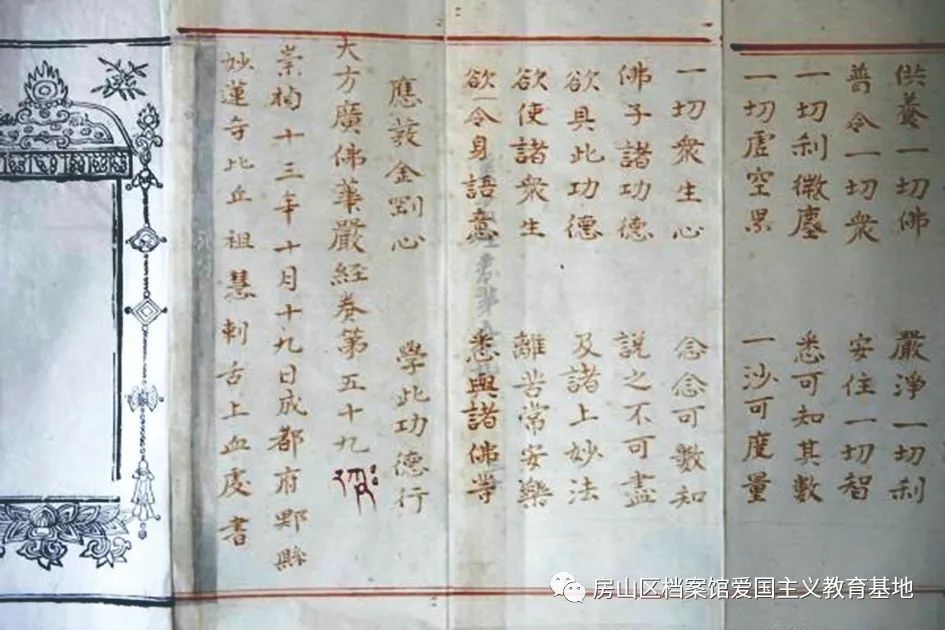 供養一切佛　嚴淨一切刹
普令一切衆　安住一切智
一切刹微塵　悉可知其數
一切虛空界　一沙可度量
一切衆生心　念念可數知
佛子諸功德　說之不可盡
欲具此功德　及諸上妙法
欲使諸衆生　離苦常安樂
欲令身語意　悉與諸佛等
應發金剛心　學此功德行
大方廣佛華嚴經卷第五十九
崇禎十三年十月十九日成都府郫縣
妙蓮寺比丘祖慧刺舌上血虔書
房山区档案馆爱国主义教育基地